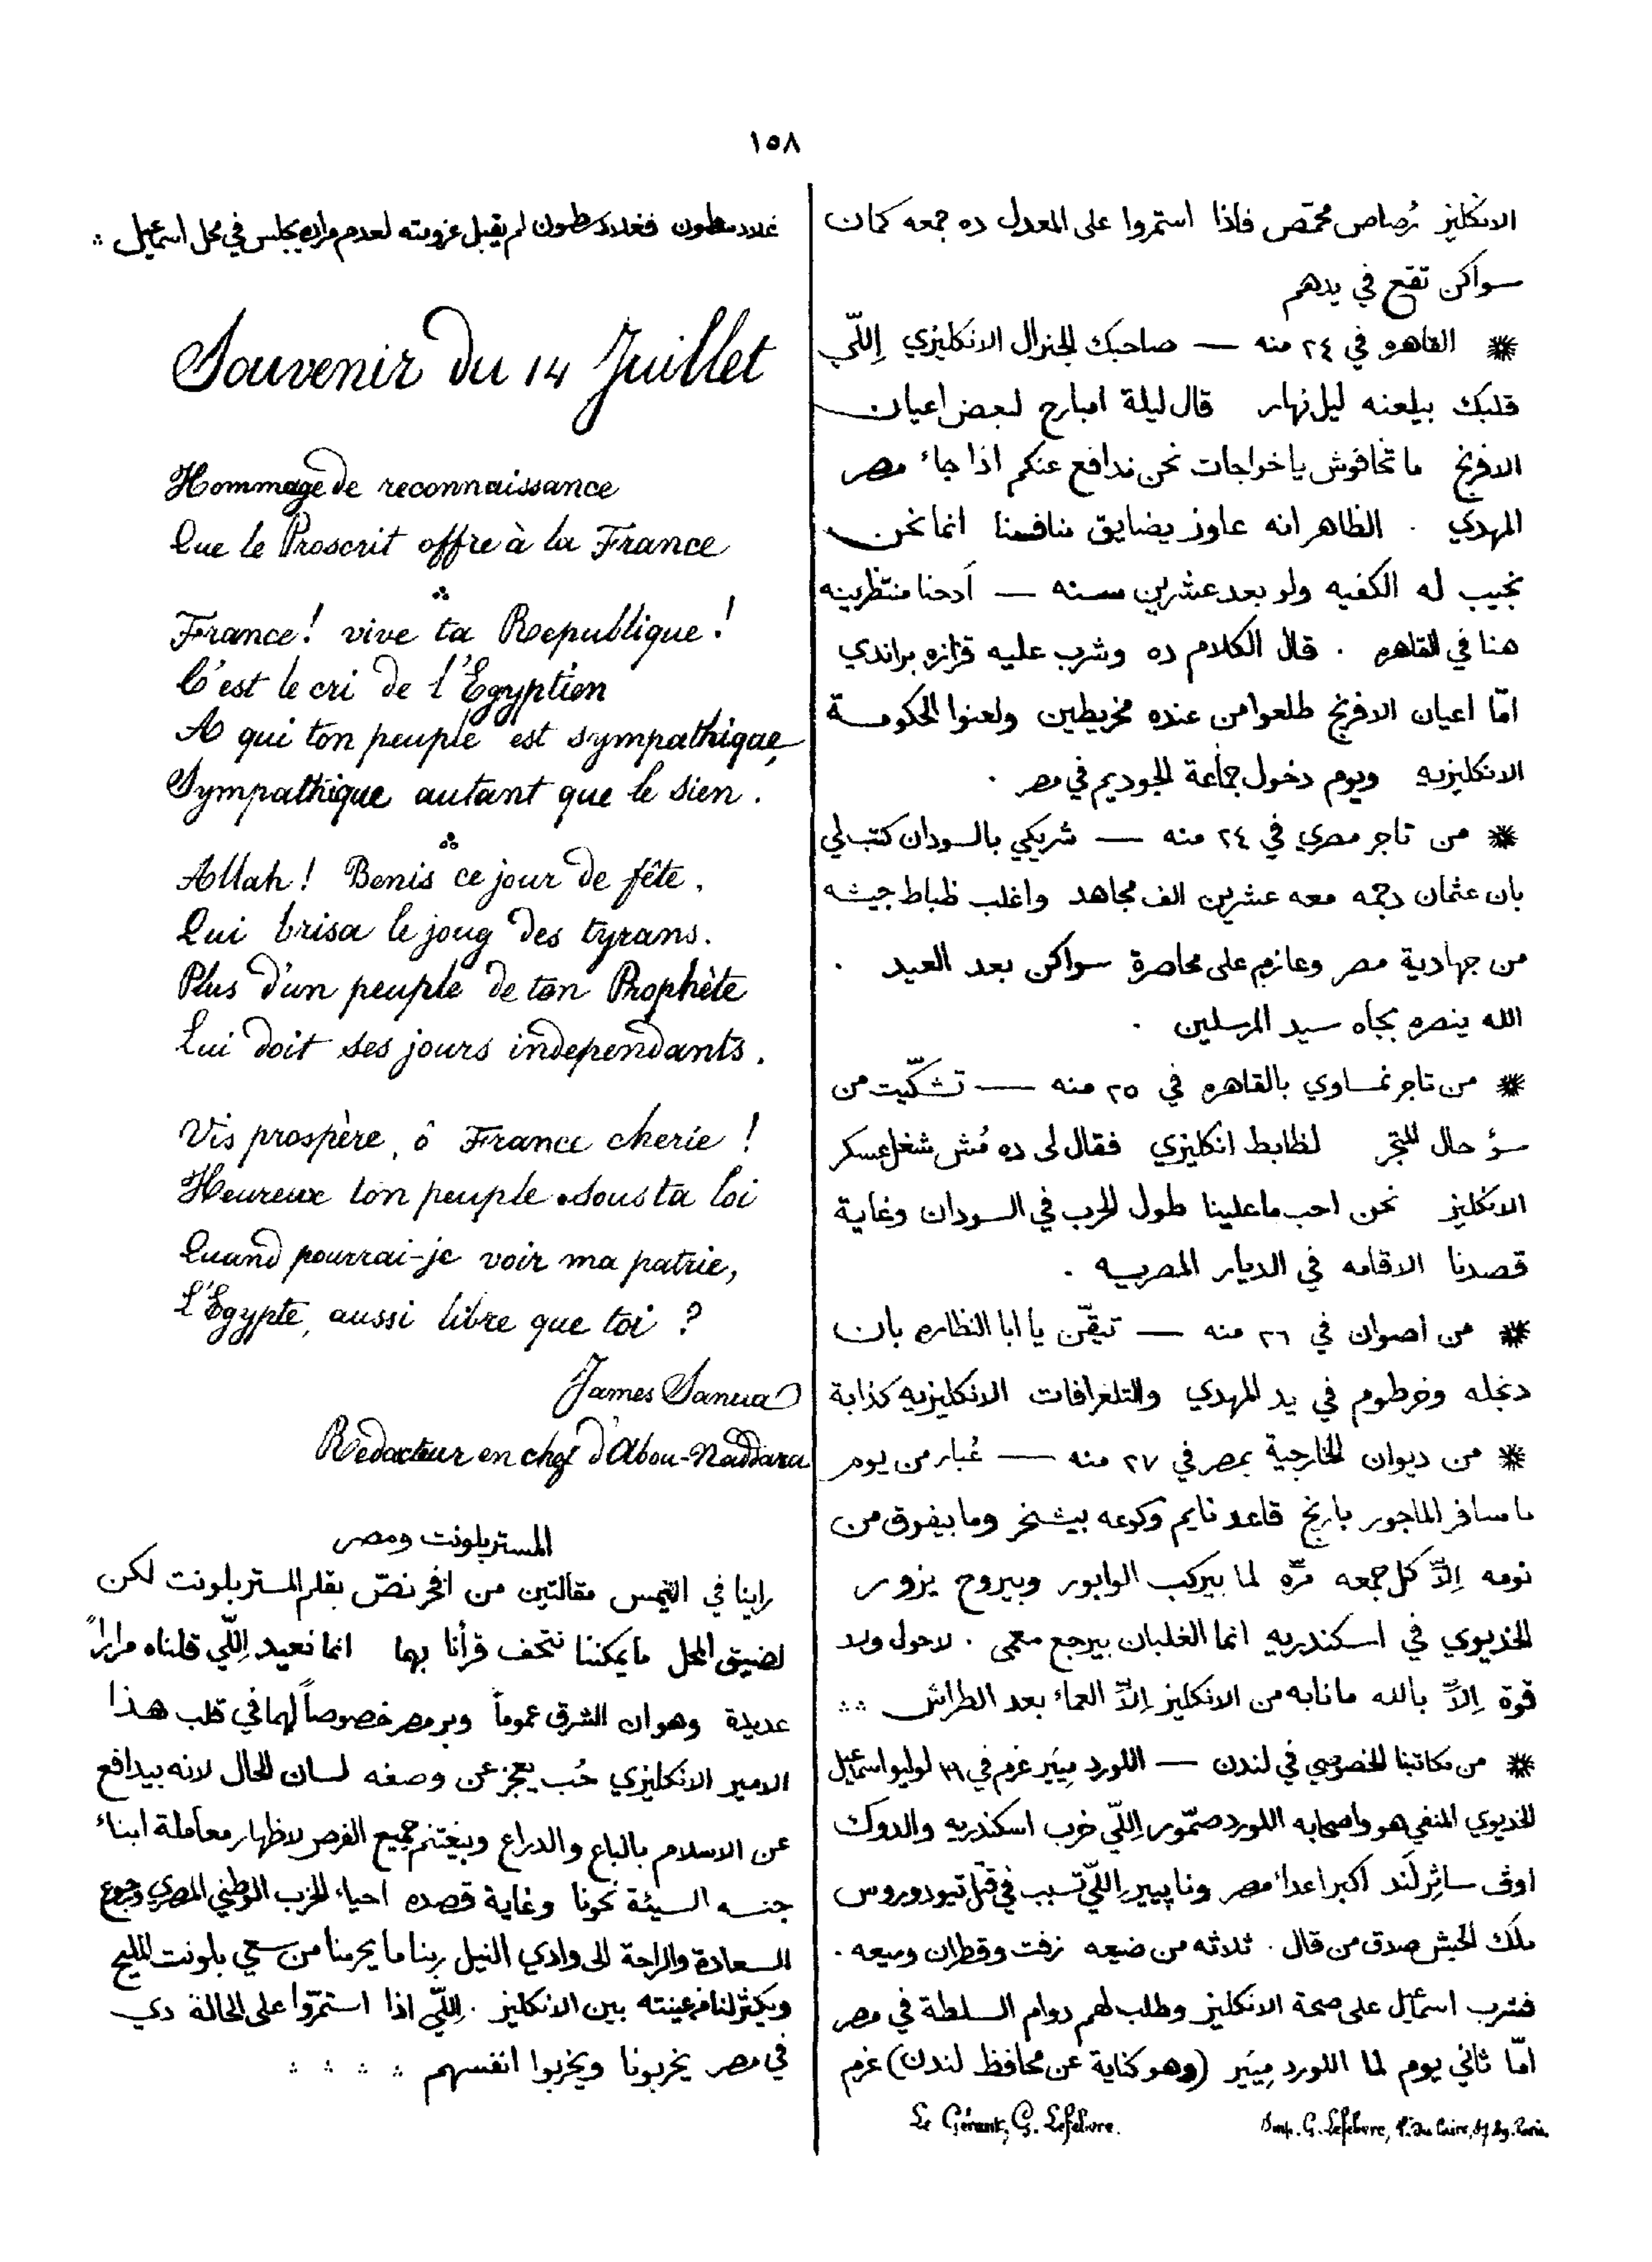 ١٥٨
الانكليز رُصاص محمّص فاذا استمروا على المعدل ده جمعه كمان
سواكن تقع في يدهم
القاهره في ٢٤ منه — صاحبك الجنرال الانكليزي اِللّي
قلبك بيلعنه ليل نهار قال ليلة امبارح لبعض اعيان
الافرنج ما تخافوش يا خواجات نحن ندافع عنكم اذا جاء مصر
المهدي . الظاهر انه عاوز يضايق منافسنا انما نحن
نجيب له الكفيه ولو بعد عشرين سنه — اَدحنا منتظرينه
هنا في القاهره . قال الكلام ده وشرب عليه قزازه براندي
امّا اعيان الافرنج طلعوا من عنده مخريطين ولعنوا الحكومة
الانكليزيه ويوم دخول جماعة الجوديم في مصر .
من تاجر مصري في ٢٤ منه — شريكي بالسودان كتب لي
بان عثمان دجمه معه عشرين الف مجاهد واغلب ظباط جيشه
من جهادية مصر وعازم على محاصرة سواكن بعد العيد .
الله ينصره بجاه سيد المرسلين .
من تاجر نمساوي بالقاهره في ٢٥ منه — تشكّيت من
سؤ حال المتجر لظابط انكليزي فقال لي ده مُش شغل عسكر
الانكليز نحن احب ما علينا طول الحرب في السودان وغاية
قصدنا الاقامه في الديار المصريه .
من اصوان في ٢٦ منه — تيقّن يا ابا النظاره بان
دنجله وخرطوم في يد المهدي والتلغرافات الانكليزيه كذابة
من ديوان الخارجية بمصر في ٢٧ منه — غُبار من يوم
ما سافر الماجور بارنج قاعد نايم وكوعه بيشخر وما بيفوق من
نومه اِلاّ كل جمعه مرّه لما بيركب الوابور وبيروح يزور
الخديوي في اسكندريه انما الغلبان بيرجع معمى . لا حول ولا
قوة اِلاّ بالله ما نابه من الانكليز اِلاّ العماء بعد الطراش
من مكاتبنا الخصوصي في لندن — اللورد مِيَير عزم في ٣١ لوليو اسماعيل
الخديوي المنفي هو واصحابه اللورد صمّور اِللّي خرب اسكندريه والدوك
اوف ساثِرلَند اكبر اعداء مصر ونابيير اِللّي تسبب في قتل تيودوروس
ملك الحبش صدق من قال . ثلاثه من ضيعه زفت وقطران وميعه .
فشرب اسماعيل على صحة الانكليز وطلب لهم دوام السلطة في مصر
امّا ثاني يوم لما اللورد مِيَير (وهو كناية عن محافظ لندن) عزم
Le Gérant, G. Lefebvre.
Imp. G. Lefebvre, Paris.
غلادسطون فغلادسطون لم يقبل عزومته لعدم مراده يجلس في محل اسماعيل
Souvenir du 14 Juillet
Hommage de reconnaissance
Que le Proscrit offre à la France
France ! vive ta Republique !
C'est le cri de l'Egyptien
A qui ton peuple est sympathique,
Sympathique autant que le sien .
Allah ! Benis ce jour de fête .
Qui brisa le joug des tyrans .
Plus d'un peuple de ton Prophète
Lui doit ses jours independants .
Vis prospère, ô France cherie !
Heureux ton peuple sous ta loi
Quand pourrai-je voir ma patrie,
L'Egypte, aussi libre que toi ?
James Sanua
Redacteur en chef d'Abou-Naddara
المستر بلونت ومصر
راينا في التيمس مقالتين من افخر نصّ بقلم المستر بلونت لكن
لضيق المحل ما يمكننا نتحف قرأنا بها انما نعيد اِللّي قلناه مراراً
عديدة وهو ان الشرق عموماً وبر مصر خصوصاً لهما في قلب هذا
الامير الانكليزي حُب يعجز عن وصفه لسان الحال لانه بيدافع
عن الاسلام بالباع والدراع وبيغتنم جميع الفرص لاظهار معاملة ابناء
جنسه السيئة نحونا وغاية قصده احياء الحزب الوطني المصري ورجوع
السعادة والراحة الى وادي النيل ربنا ما يحرمنا من سعي بلونت المليح
ويكثر لنا من عينته بين الانكليز . اِللّي اذا استمرّوا على الحالة دي
في مصر يخربونا ويخربوا انفسهم